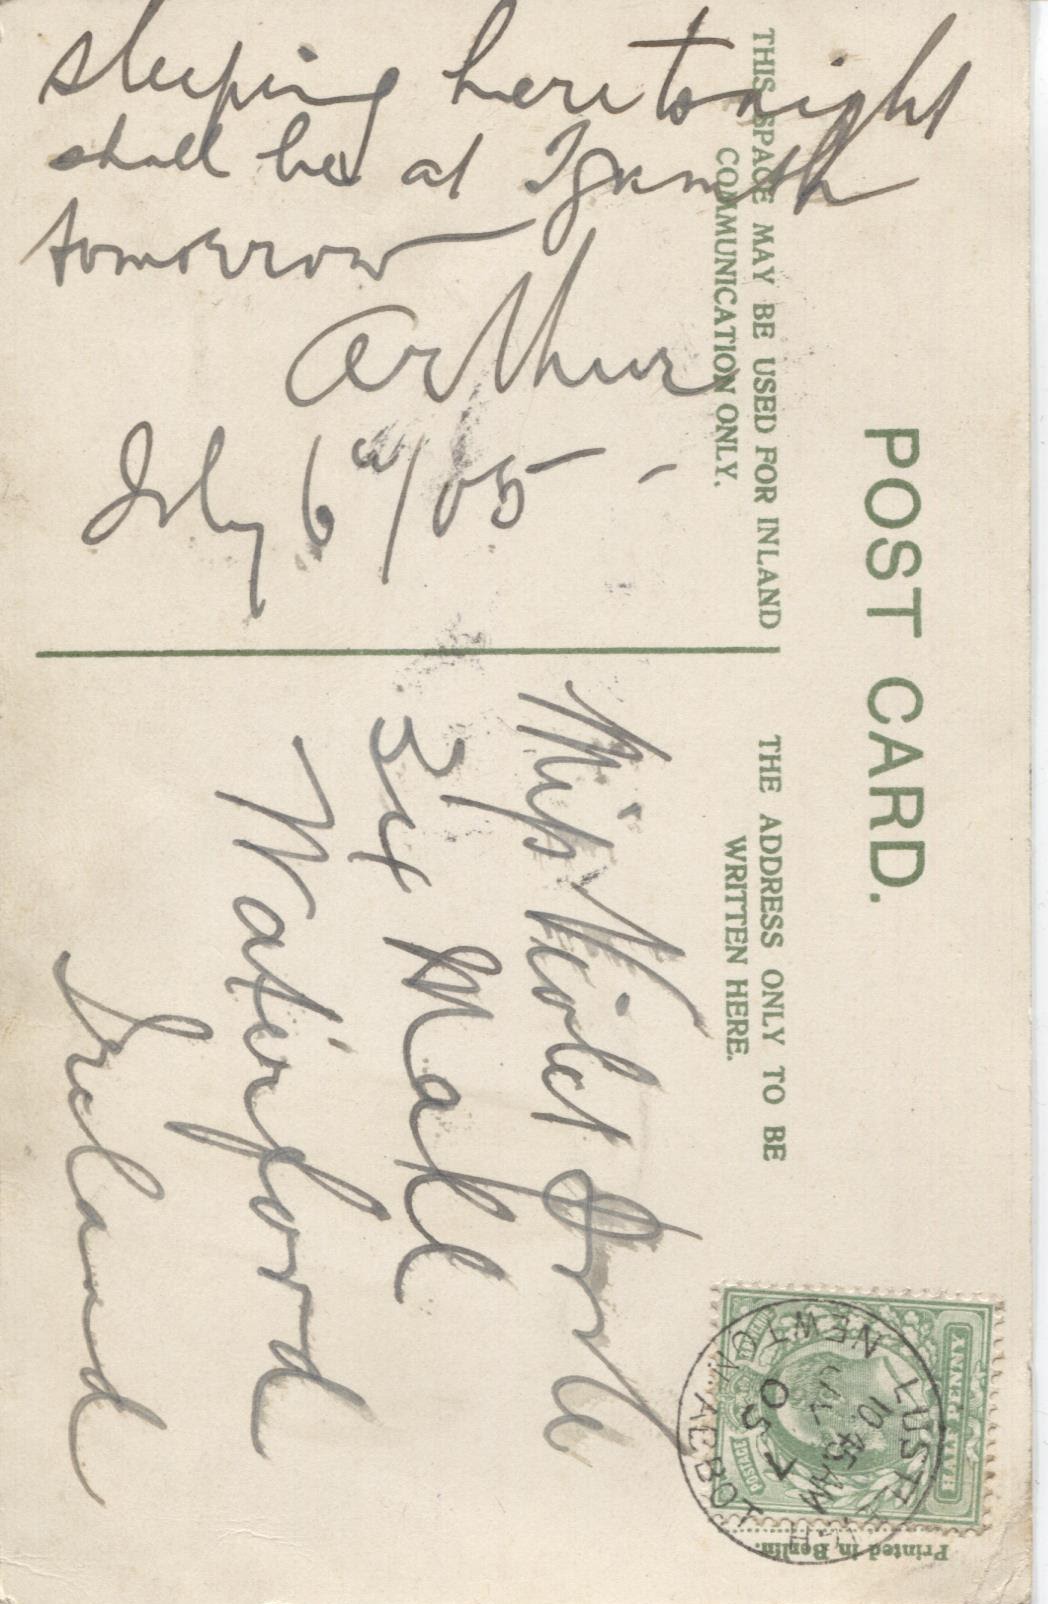 POST CARD.
THIS SPACE MAY BE USED FOR INLAND
COMMUNICATION ONLY.
THE ADDRESS ONLY TO BE
WRITTEN HERE.
sleeping here tonight
shall be at
tomorrow
Arthur
July 6th/05 -
Miss Violet
34 Mall
Waterford
Ireland
HALF PENNY
POSTAGE
LUSTLEIGH
10.45 AM
JY 7
05
NEWTON ABBOT
Printed in Berlin.